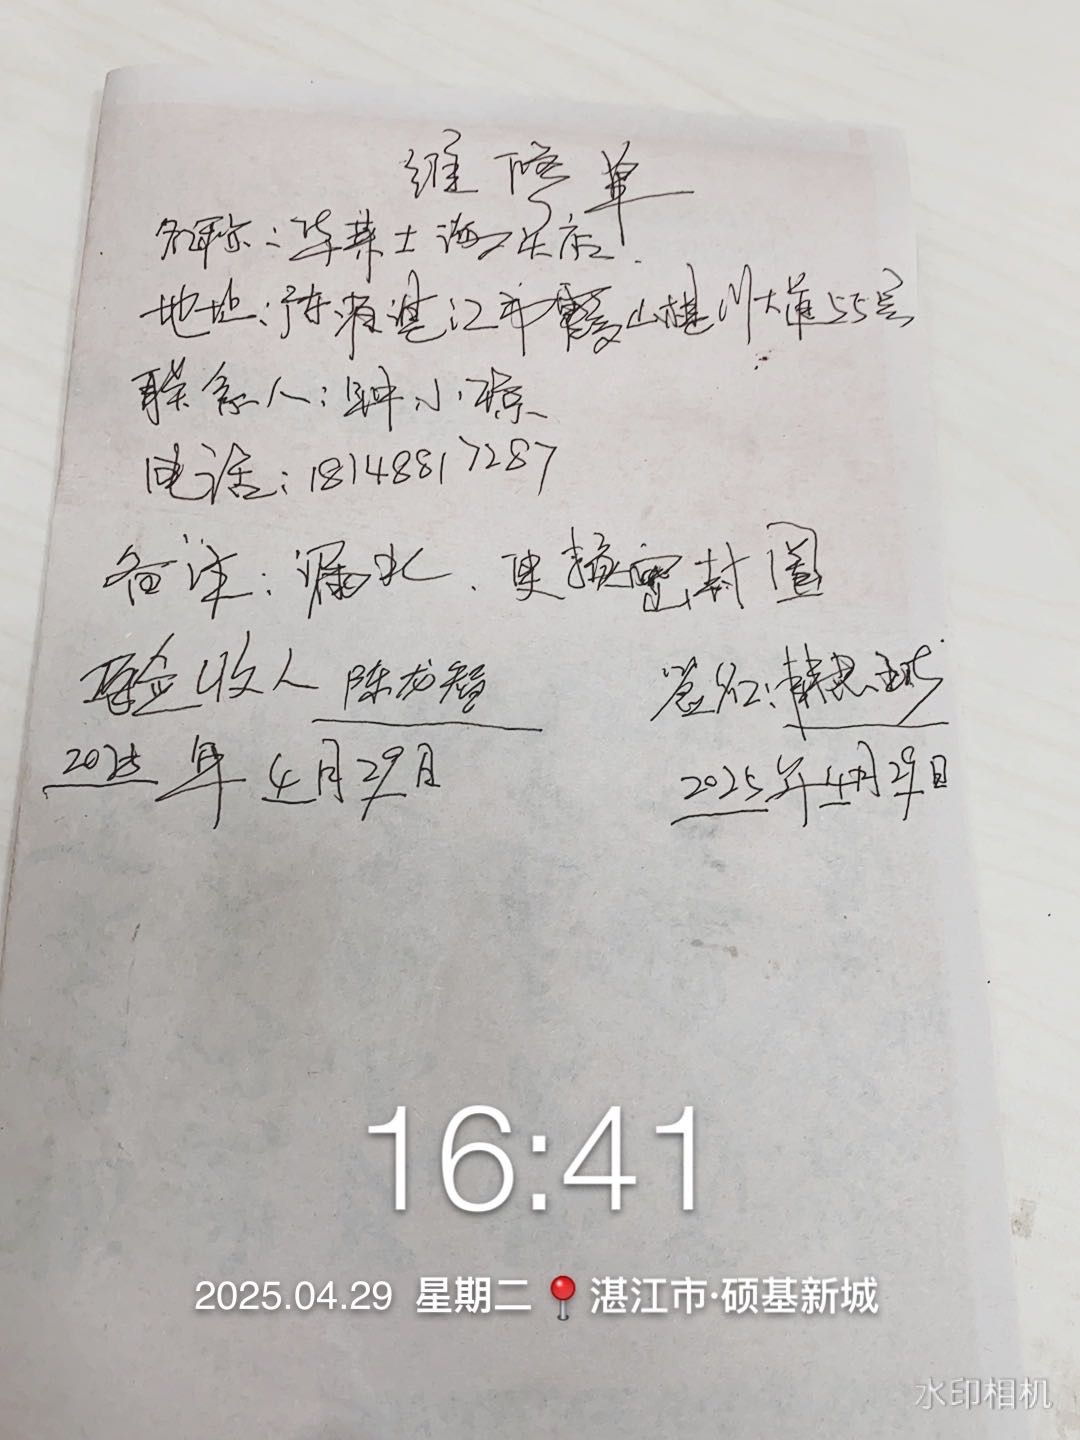 维修单
名称:华莱士海乐店.
地址:广东省湛江市霞山椹川大道55号
联系人:钟小琼
电话:18148817287
备注:漏水.更换密封圈
验收人 陈龙智 签名:韩忠
2025年4月29日 2025年4月29日
16:41
2025.04.29 星期二 湛江市·硕基新城
水印相机